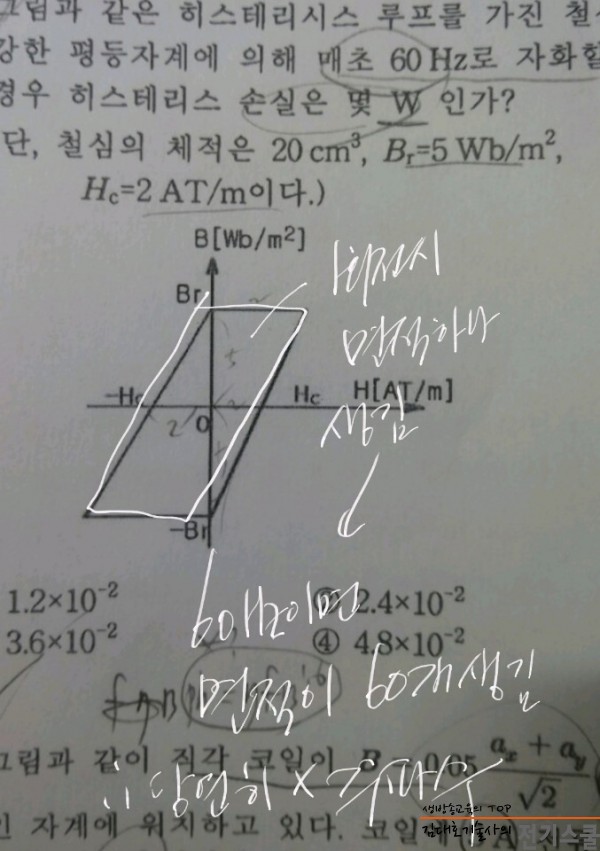 그림과 같은 히스테리시스 루프를 가진 철
강한 평등자계에 의해 매초 60 Hz로 자화할
경우 히스테리스 손실은 몇 W 인가?
단, 철심의 체적은 20 cm³, Br=5 Wb/m²,
Hc=2 AT/m이다.)
B[Wb/m²]
Br
1회전시
면적하나
생김
-Hc
Hc
H[AT/m]
2
2
5
O
-Br
60Hz이면
면적이 60개 생김
∴ 당연히 × 주파수
1.2×10⁻²
② 2.4×10⁻²
3.6×10⁻²
④ 4.8×10⁻²
그림과 같이 직각 코일이 B 0.05 ax + ay
√2
인 자계에 위치하고 있다. 코일에 A 지
생방송교육의 TOP
김대호기술사의
전기스쿨